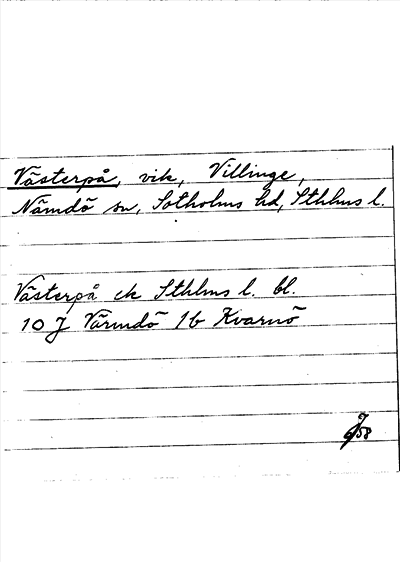 Västerpå, vik, Villinge,
Nämdö sn, Sotholms hd, Sthlms l.
Västerpå ek Sthlms l. bl.
10 J Värmdö 1b Kvarnö